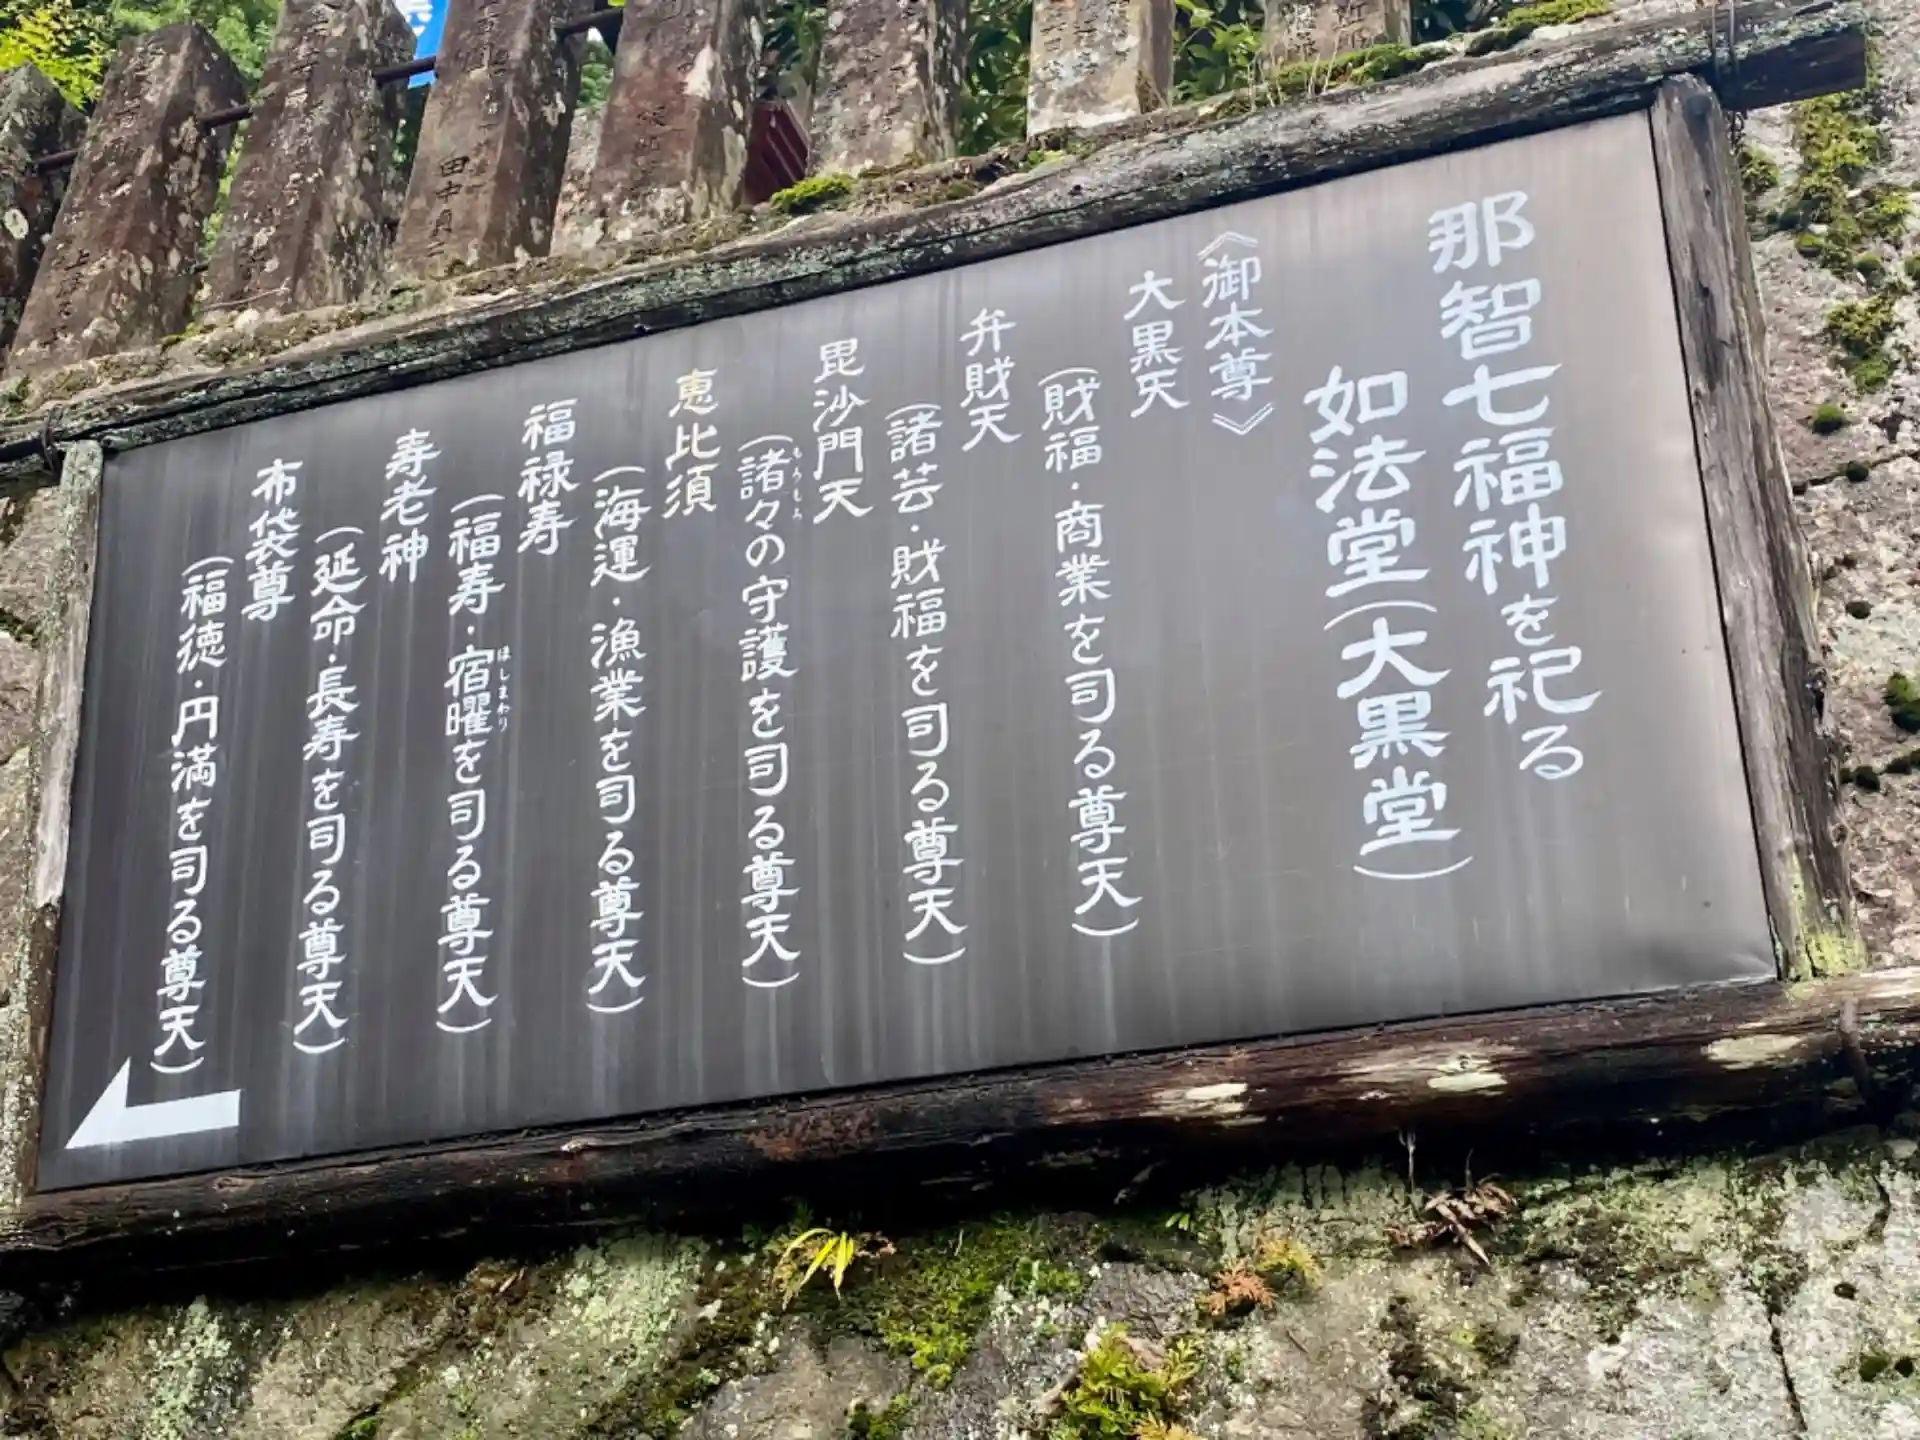 那智七福神を祀る
如法堂(大黒堂)
《御本尊》
大黒天
(財福・商業を司る尊天)
弁財天
(諸芸・財福を司る尊天)
毘沙門天
(諸々の守護を司る尊天)
もろもろ
恵比須
(海運・漁業を司る尊天)
福禄寿
(福寿・宿曜を司る尊天)
ほしまわり
寿老神
(延命・長寿を司る尊天)
布袋尊
(福徳・円満を司る尊天)
田中